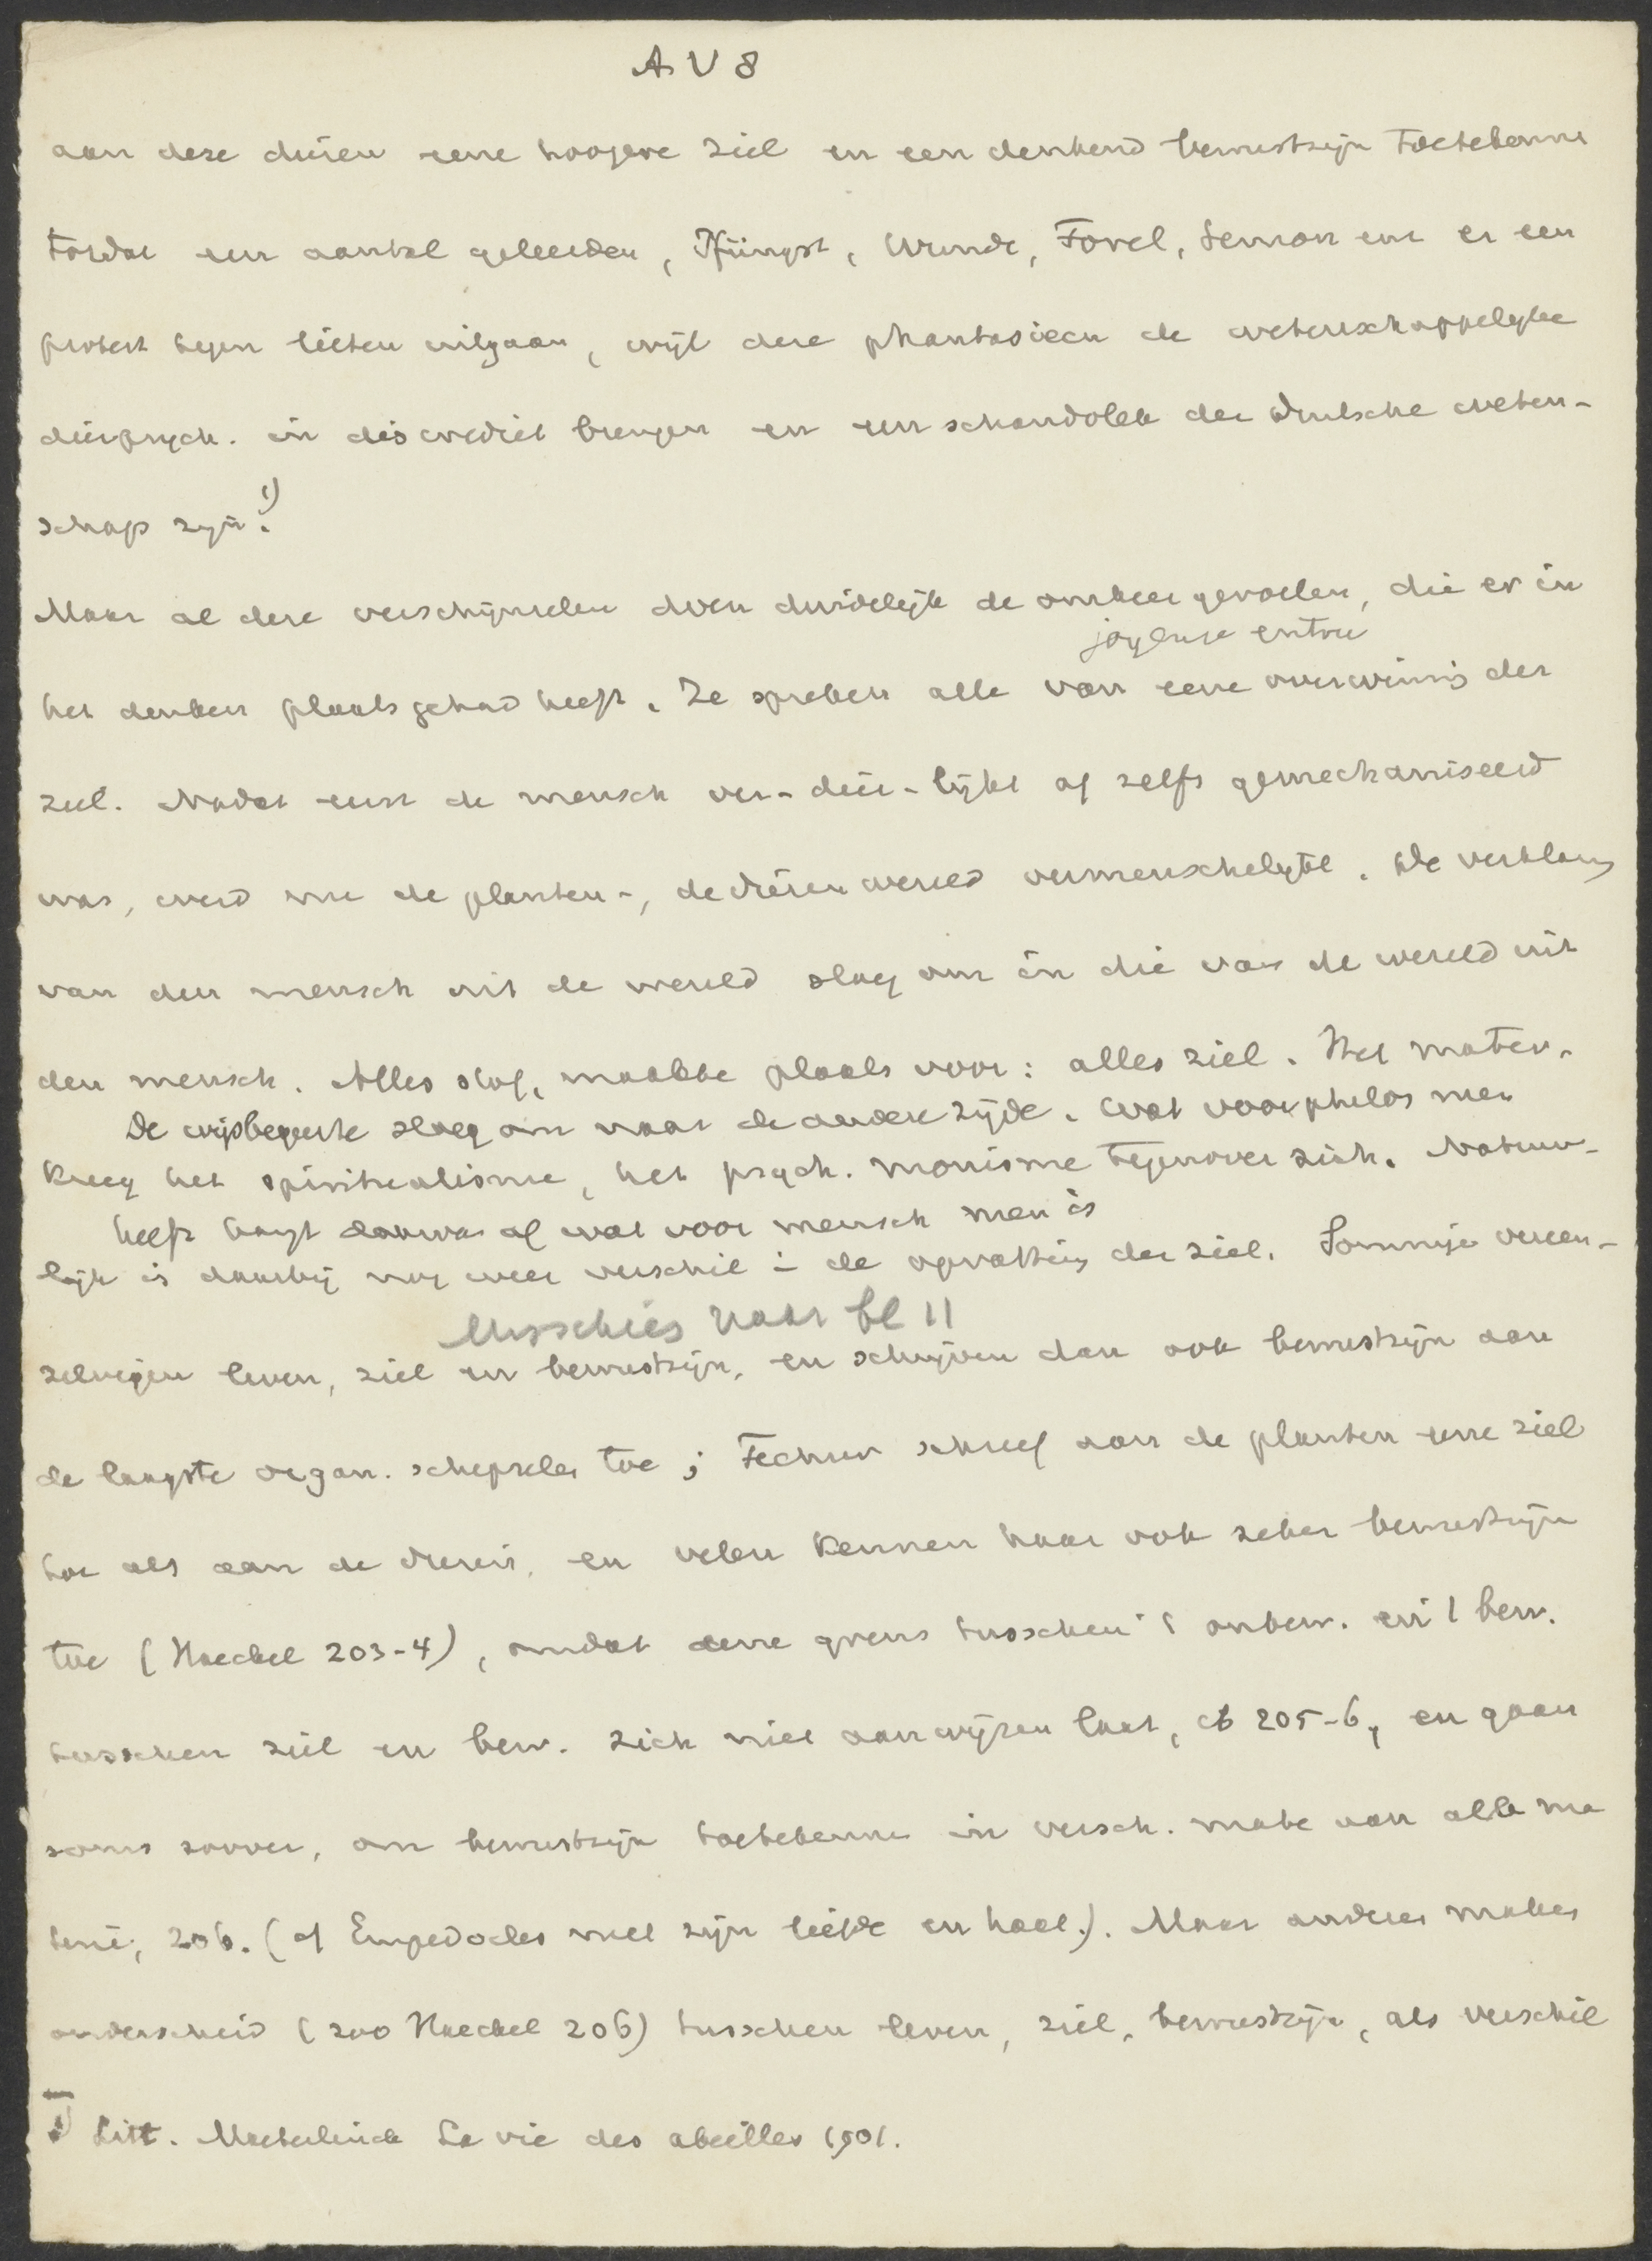 A V 8
aan deze dieren eene hoogere ziel en een denkend bewustzijn toetekennen
totdat een aantal geleerden, Pfüngst, Wundt, Forel, Semon enz er een
protest tegen lieten uitgaan, wijl deze phantasieën de wetenschappelijke
dierpsych. in discrediet brengen en een schandvlek der Duitsche weten-
schap zijn.1)
Maar al deze verschijnselen doen duidelijk de omkeer gevoelen, die er in
joyeuse entree
het denken plaats gehad heeft. Ze spreken alle van eene overwinning der
ziel. Nadat eerst de mensch ver-dier-lijkt of zelfs gemechaniseerd
was, werd nu de planten-, de dierenwereld vermenschelijkt. De verklaring
van den mensch uit de wereld sloeg om in die van de wereld uit
den mensch. Alles stof, maakte plaats voor: alles ziel. Het mater.
De wijsbegeerte sloeg om naar de andere zijde. Wat voor philos men
kreeg het spiritualisme, het psych. monisme tegenover zich. Natuur-
heeft hangt daarvan af wat voor mensch men is
lijk is daarbij nog weer verschil in de opvatting der ziel. Sommige vereen-
Misschien naar bl 11
zelvigen leven, ziel en bewustzijn, en schrijven dan ook bewustzijn aan
de laagste organ. schepselen toe; Fechner schreef aan de planten eene ziel
toe als aan de dieren, en velen kennen haar ook zeker bewustzijn
toe (Haeckel 203-4), omdat eene grens tusschen 't onbew. en 't bew.
tusschen ziel en bew. zich niet aanwijzen laat, ib 205-6, en gaan
soms zoover, om bewustzijn toetekennen in versch. mate aan alle ma
terie, 206. (cf Empedocles met zijn liefde en haat.). Maar anderen maken
onderscheid (zoo Haeckel 206) tusschen leven, ziel, bewustzijn, als verschil
1) Litt. Maeterlinck La vie des abeilles 1901.